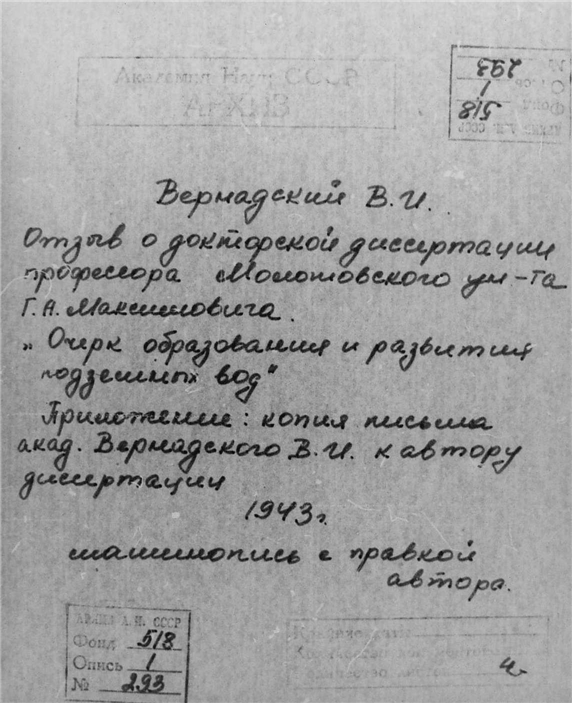 Академия Наук СССР
АРХИВ
АРХИВ А.Н. СССР
Фонд 518
Опись 1
№ 293
Вернадский В.И.
Отзыв о докторской диссертации
профессора Молотовского ун-та
Г.А. Максимовича.
„Очерк образования и развития
подземных вод"
Приложение: копия письма
акад. Вернадского В.И. к автору
диссертации
1943г.
машинопись с правкой
автора.
АРХИВ А.Н. СССР
Фонд 518
Опись 1
№ 293